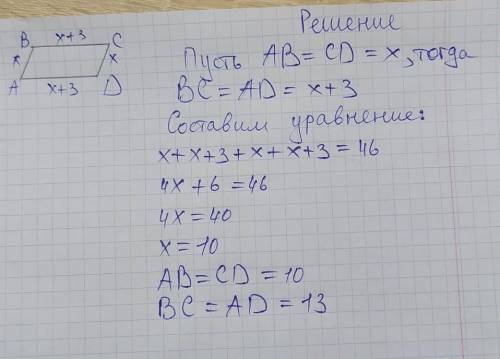 Решение
B x+3 C
x x
A x+3 D
Пусть AB = CD = x, тогда
BC = AD = x+3
Составим уравнение:
x+x+3+x+x+3 = 46
4x+6 = 46
4x = 40
x = 10
AB = CD = 10
BC = AD = 13